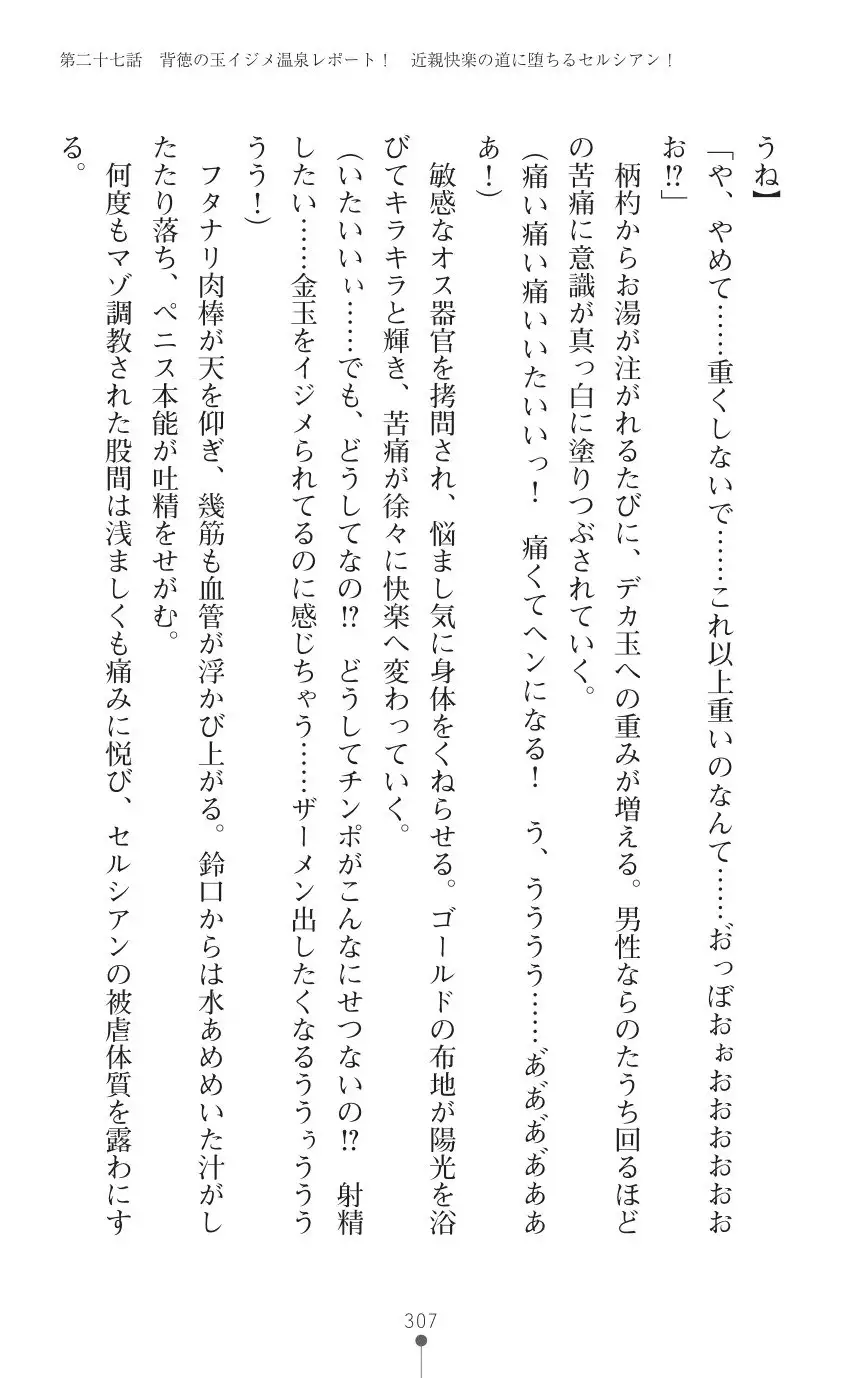 第二十七話　背徳の玉イジメ温泉レポート！　近親快楽の道に堕ちるセルシアン！
うね】
「や、やめて……重くしないで……これ以上重いのなんて……お゛っぼおぉおおおおおお
お!?」
　柄杓からお湯が注がれるたびに、デカ玉への重みが増える。男性ならのたうち回るほど
の苦痛に意識が真っ白に塗りつぶされていく。
（痛い痛い痛いいたいいっ！　痛くてヘンになる！　う、うううう……あ゛あ゛あ゛あ゛ああ
あ！）
　敏感なオス器官を拷問され、悩まし気に身体をくねらせる。ゴールドの布地が陽光を浴
びてキラキラと輝き、苦痛が徐々に快楽へ変わっていく。
（いたいいぃ……でも、どうしてなの!?　どうしてチンポがこんなにせつないの!?　射精
したい……金玉をイジメられてるのに感じちゃう……ザーメン出したくなるううぅううう
うう！）
　フタナリ肉棒が天を仰ぎ、幾筋も血管が浮かび上がる。鈴口からは水あめめいた汁がし
たたり落ち、ペニス本能が吐精をせがむ。
　何度もマゾ調教された股間は浅ましくも痛みに悦び、セルシアンの被虐体質を露わにす
る。
307